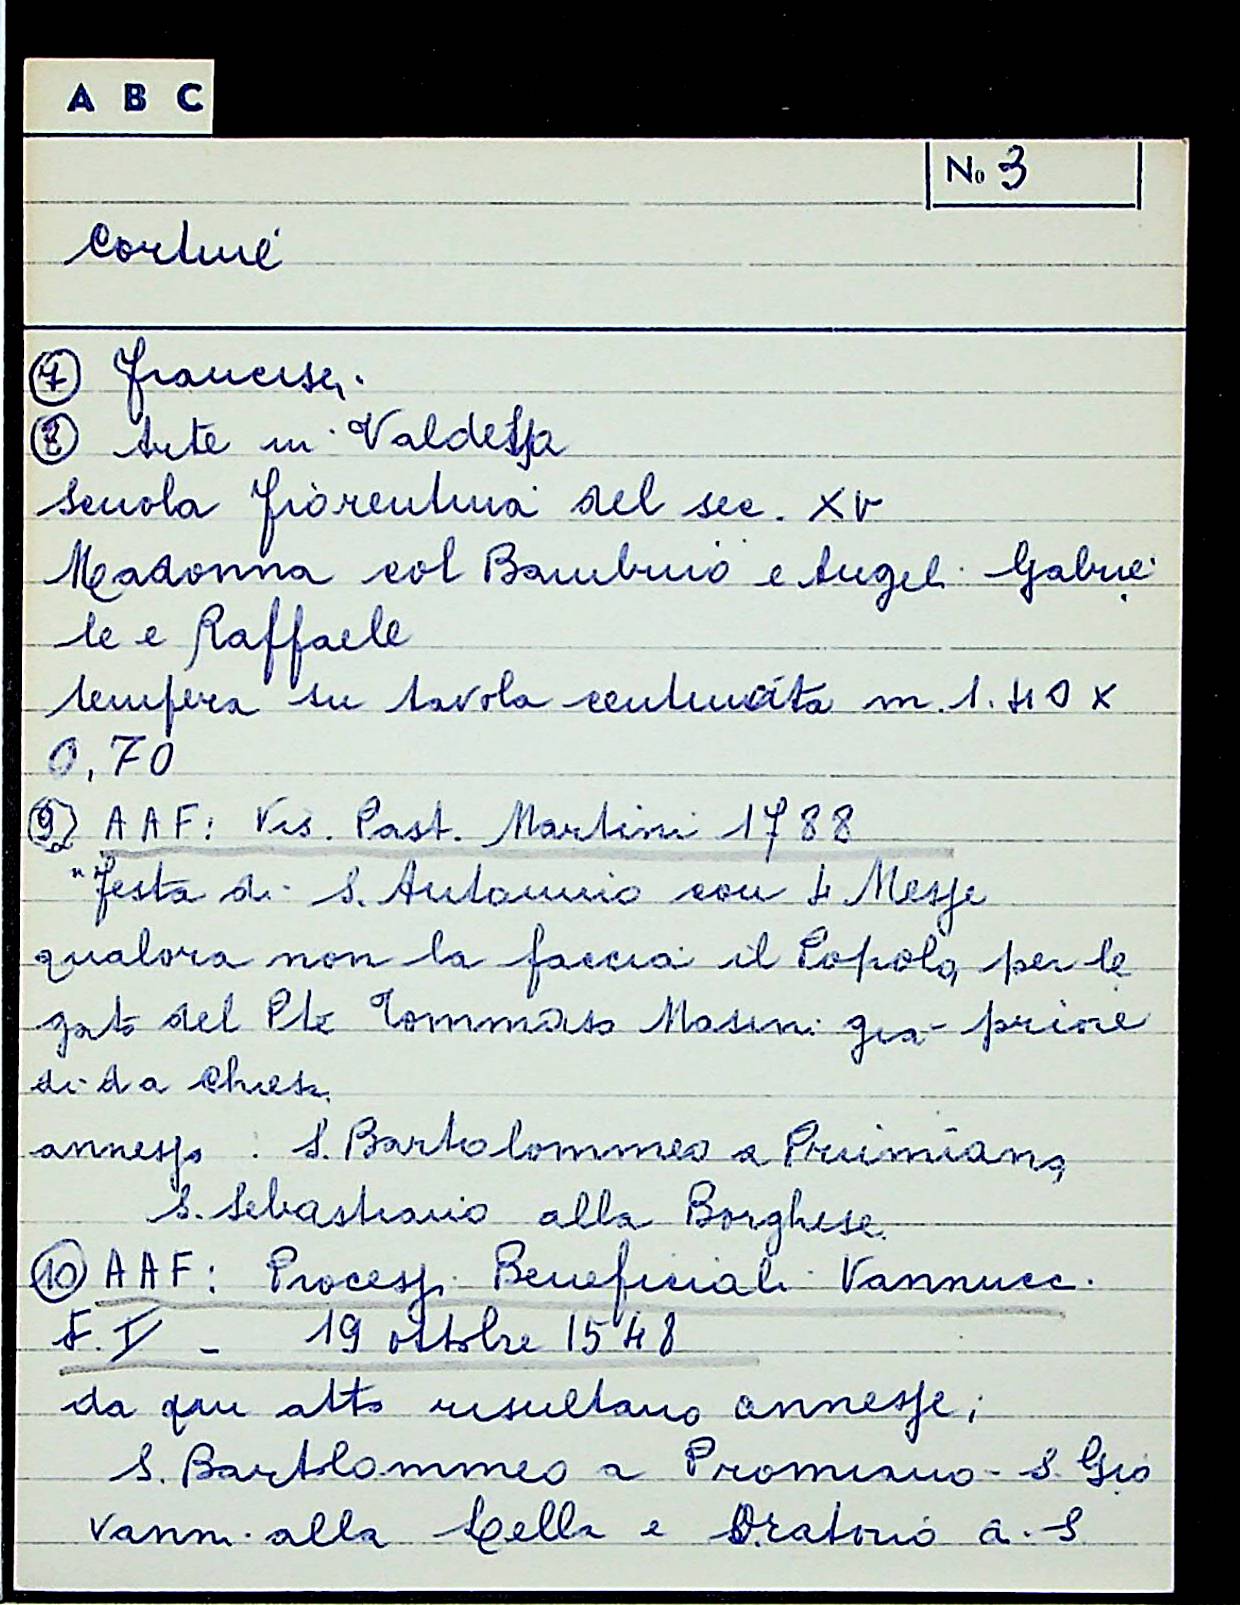 A B C
No 3
Cortine
7 Francesi.
8 Arte in Valdelsa
Scuola fiorentina del sec. XV
Madonna col Bambino e Angeli Gabrie
le e Raffaele
tempera su tavola centinata m. 1.40 x
0,70
9 AAF: Vis. Past. Martini 1788
"Festa di S. Antonino con 4 Messe
qualora non la faccia il Popolo, per le
gato del Pte Tommaso Masini già priore
di da Chiesa
annessi: S. Bartolommeo a Pruimiano,
S. Sebastiano alla Borghese.
10 AAF: Processi Beneficiali Vannucci
F. V - 19 ottobre 1548
da qui atto risultano annesse;
S. Bartolommeo a Promiano - S. Gio
vanni alla Cella e Oratorio a S